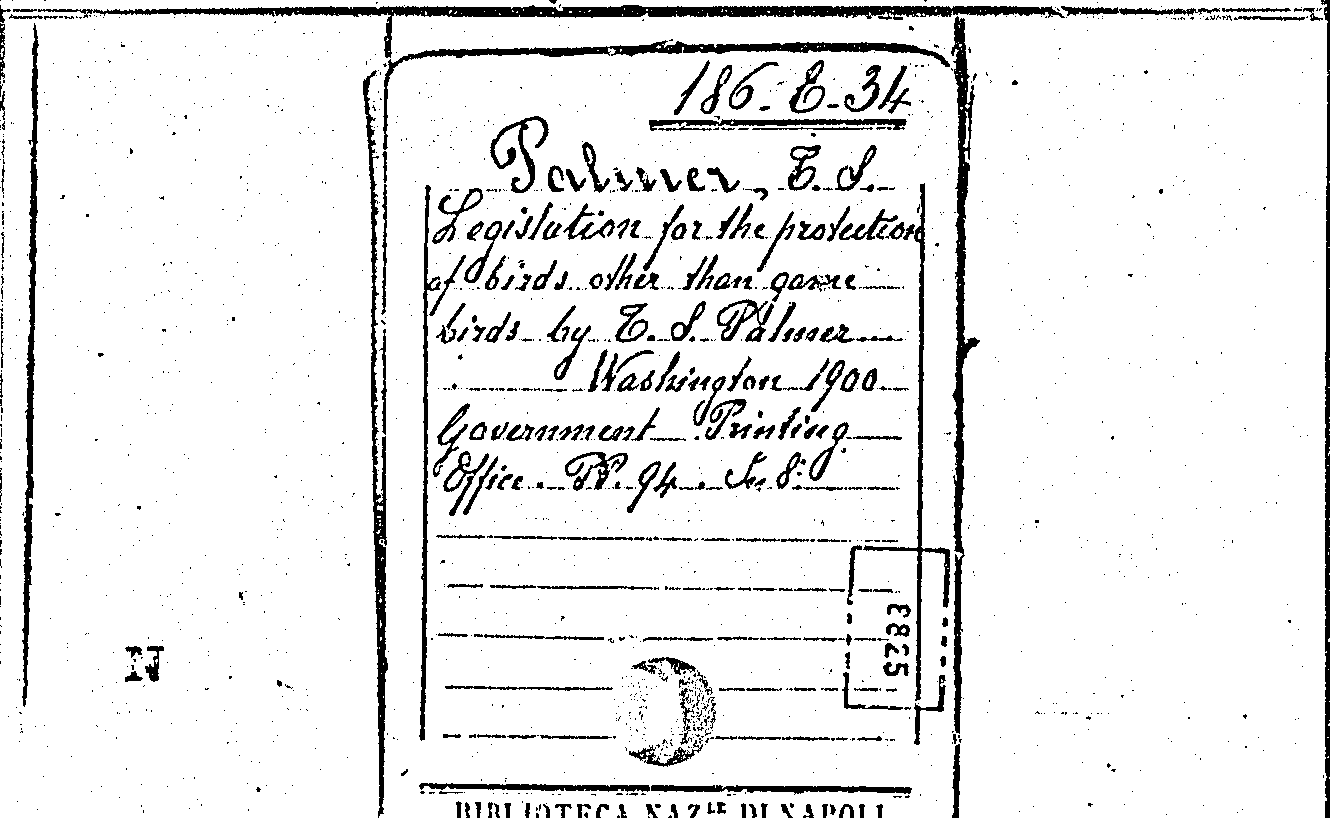 186-E-34
Palmer, T. S.
Legislation for the protection
of birds other than game
birds by T. S. Palmer
Washington 1900
Government Printing
Office. PP. 94. In 8°
E8825
N
BIBLIOTECA NAZ.LE DI NAPOLI